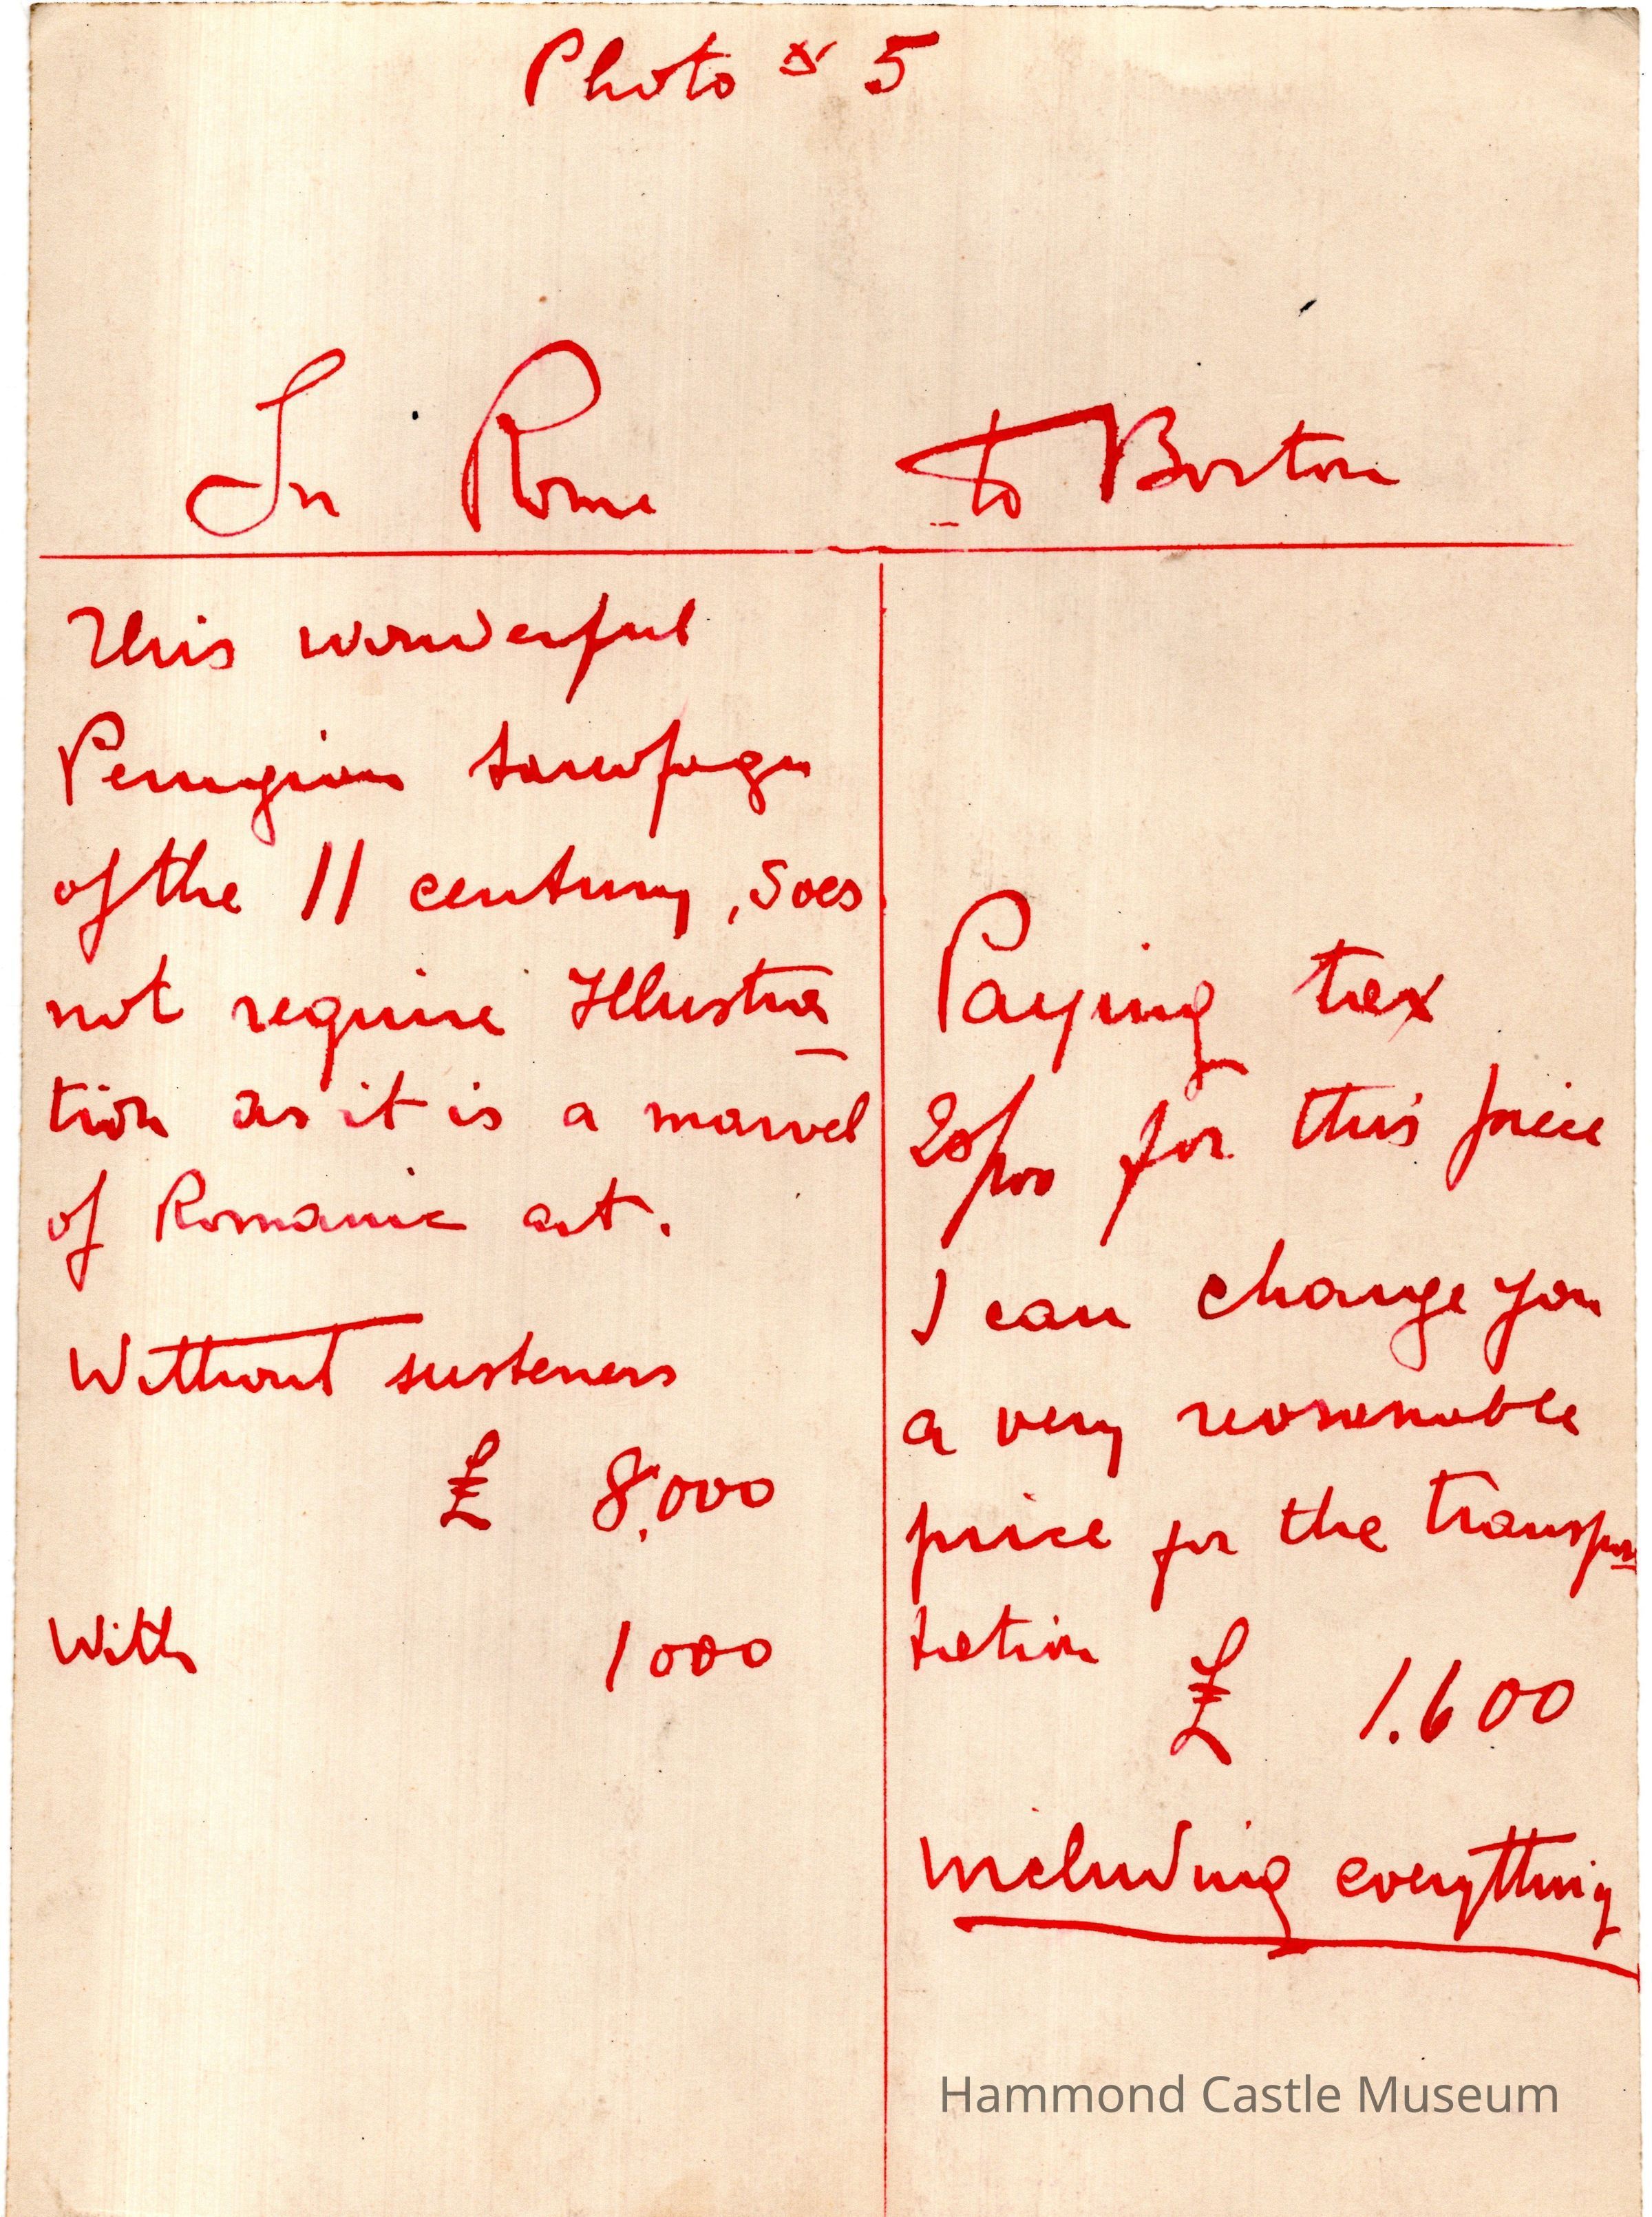 Photo N 5
In Rome
This wonderful
Perugian sarcofagu
of the 11 century, does
not require Illustra
tion as it is a marvel
of Romanic art.
Without susteners
£ 8,000
With 1000
to Boston
Paying tax
20/100 for this piece
I can charge you
a very reasonable
price for the transpor
tation £ 1.600
including everything
Hammond Castle Museum